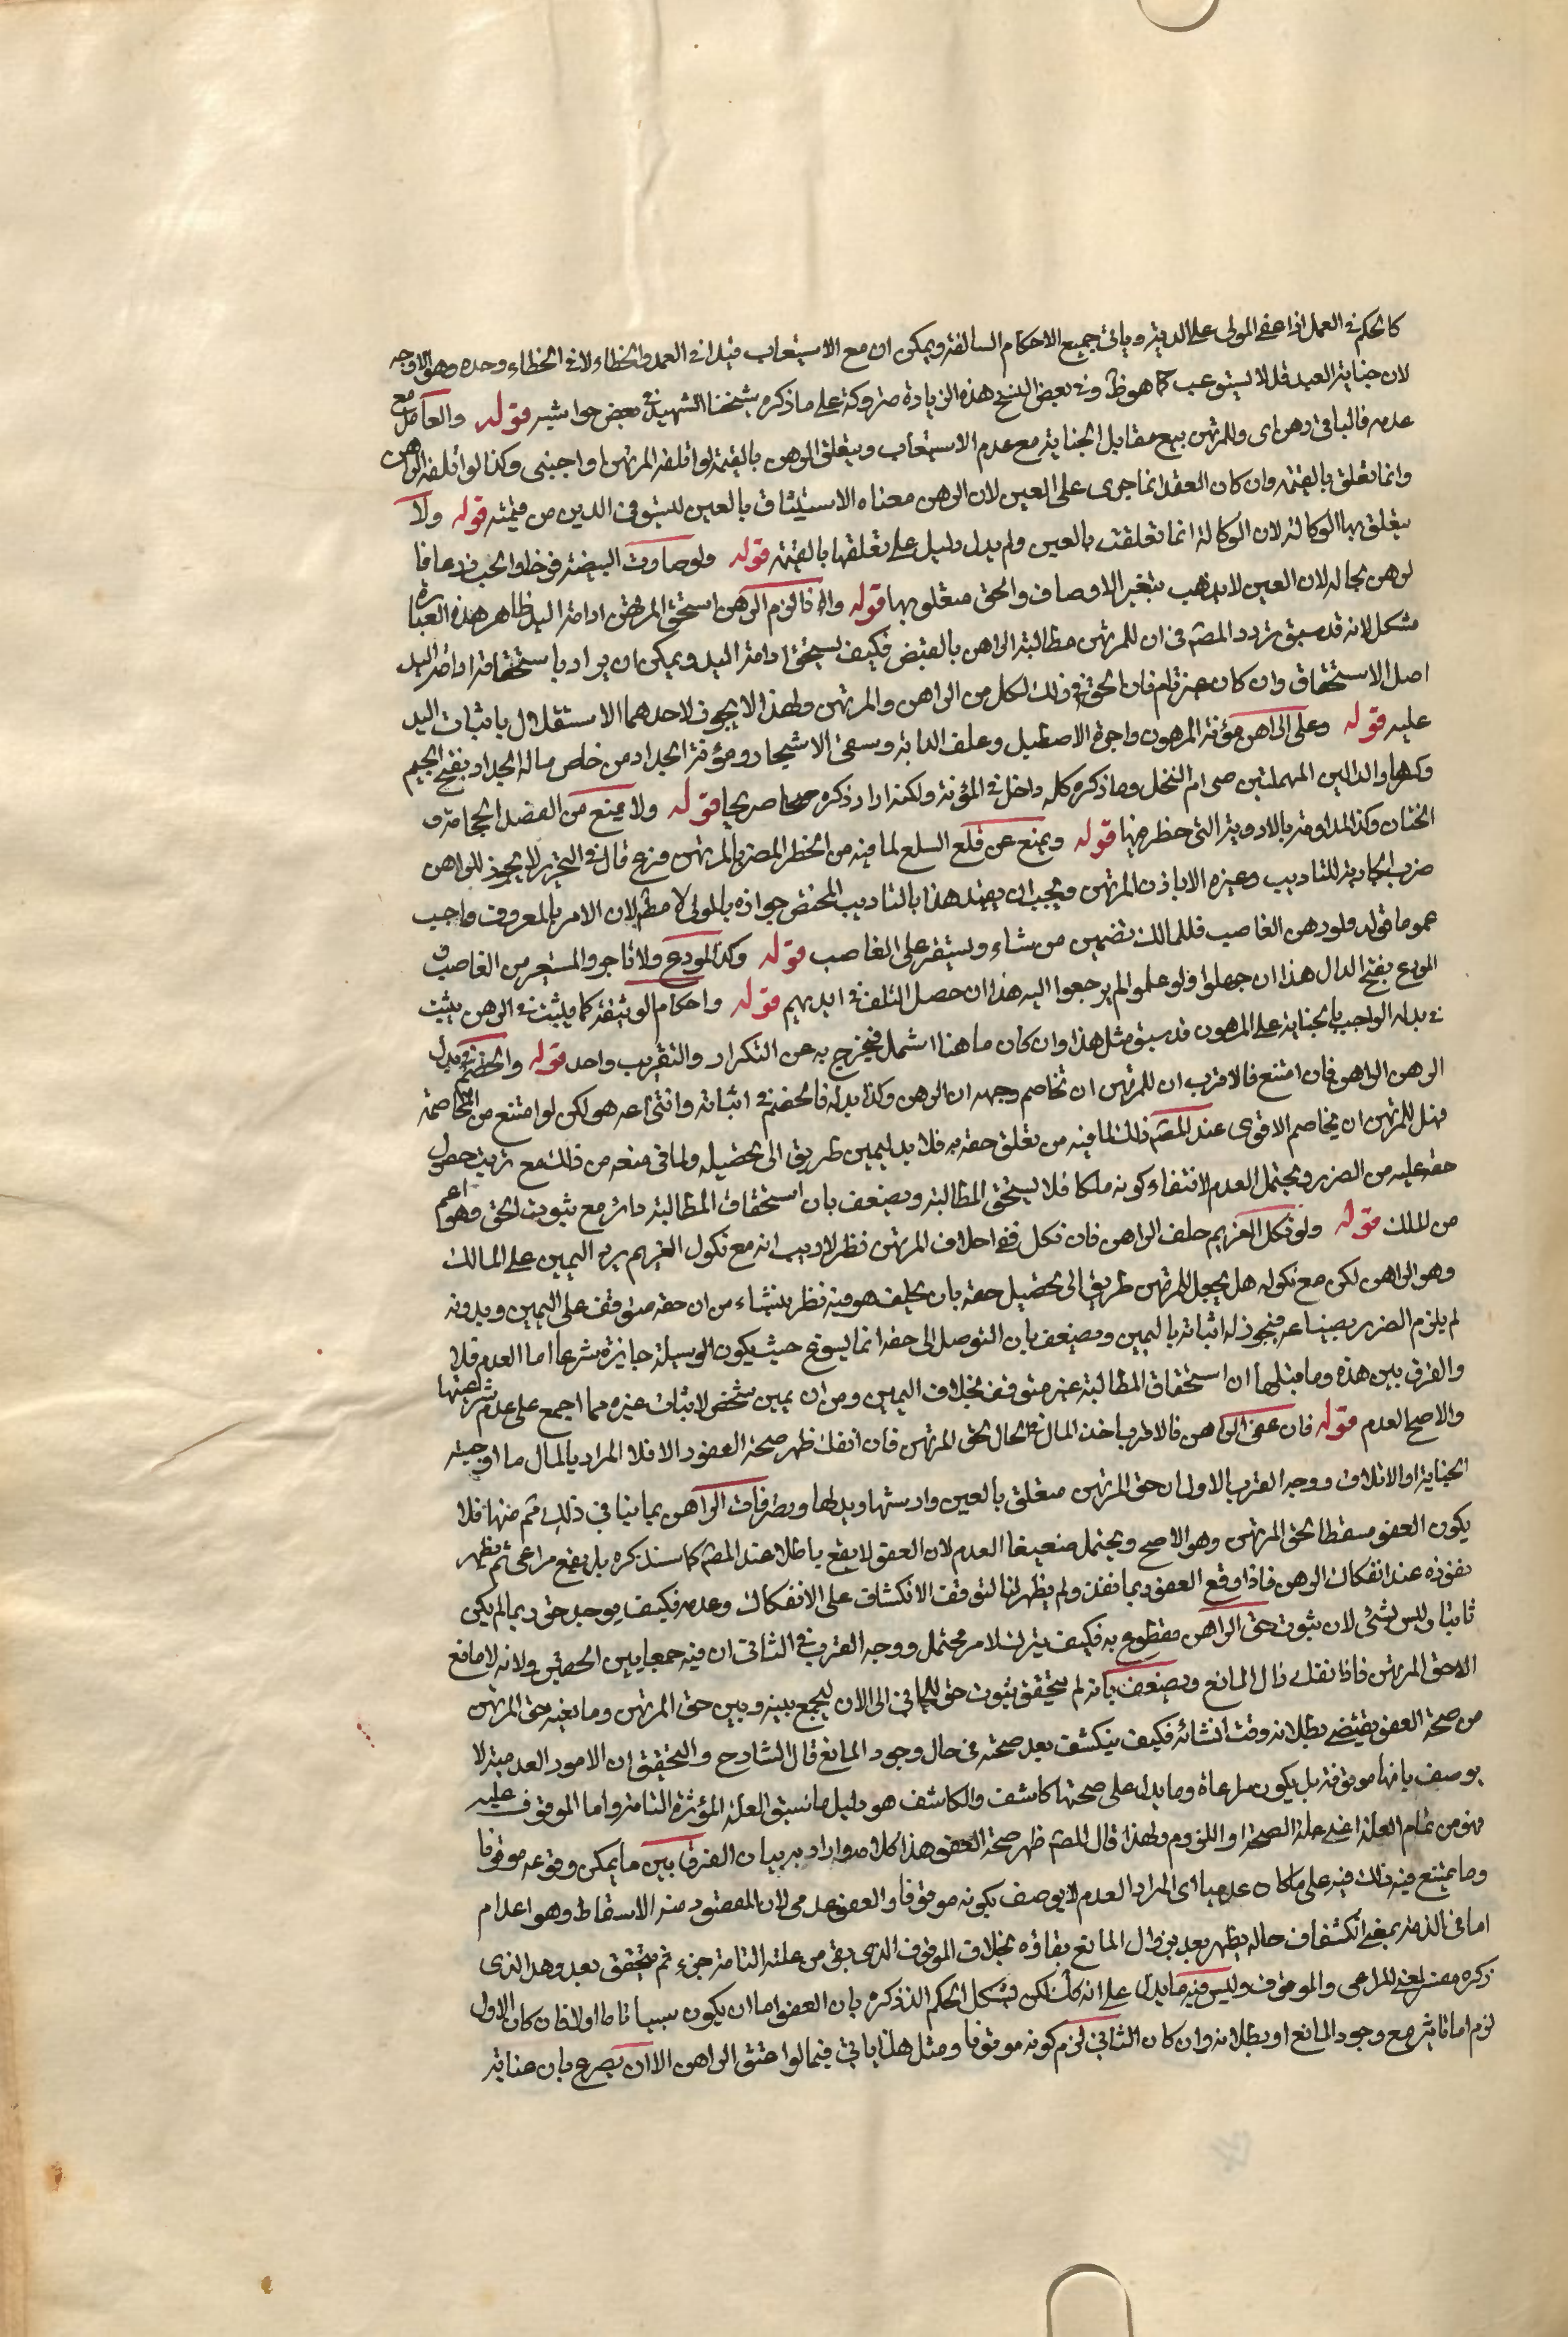 كالحكم في العمل اذا عفى المولى على الدية وياتي جميع الاحكام السالفة ويمكن ان مع الاستيعاب قيدا في العمد والخطاء لا في الخطاء وحده وهو الاوجه
لان جناية العبد قد لا يستوعب كما هو ظ وفي بعض النسخ هذه الزيادة متروكة على ما ذكره شيخنا الشهيد في بعض حواشيه قوله والعامل مع
عدمه فالباقي رهن اى وللمرتهن بيع مقابل الجناية مع عدم الاستيعاب ويتعلق الرهن بالقيمة لو اتلفه المرتهن او اجنبى وكذا لو اتلفه الراهن
وانما تعلق بالقيمة وان كان العقد انما جرى على العين لان الرهن معناه الاستيثاق بالعين ليستوفى الدين من قيمته قوله ولا
يتعلق بها الوكالة لان الوكالة انما تعلقت بالعين ولم يدل دليل على تعلقها بالقيمة قوله ولو صارت البيضة فرخا والحب زرعا فا
لرهن بحاله لان العين لا يذهب بتغير الاوصاف والحق متعلق بها قوله واذا لزم الرهن استحق المرتهن ادامة اليد ظاهر هذه العبارة
مشكل لانه قد سبق تردد المصم في ان للمرتهن مطالبة الراهن بالقبض فكيف يستحق ادامة اليد ويمكن ان يراد باستحقاقه ادامة اليد
اصل الاستحقاق وان كان غير تام فان الحق في ذلك لكل من الراهن والمرتهن ولهذا لا يجوز لاحدهما الاستقلال باثبات اليد
عليه قوله وعلى الراهن مؤنة المرهون واجرة الاصطبل وعلف الدابة وسقى الاشجار ومؤنة الجداد من خاص ماله الجداد بفتح الجيم
وكسرها والدالين المهملتين صرام النخل وما ذكره كله داخل في المؤنة ولكنه اراد ذكره صريحا قوله ولا يمنع من الفصد والحجامة و
الختان وكذا المداومة بالادوية التي خطر منها قوله ويمنع عن قلع السلع لما فيه من الخطر المضر بالمرتهن فرع قال في التحرير لا يجوز للراهن
ضرب الجارية للتاديب وغيره الا باذن المرتهن ويجب ان يقيد هذا بالتاديب المختص جوازه بالمولى لا مطم لان الامر بالمعروف واجب
عموما قوله ولو رهن الغاصب فللمالك تضمين من شاء ويستقر على الغاصب قوله وكذا المودع والمستاجر والمستعير من الغاصب
المودع بفتح الدال هذا ان جهلوا ولو علموا لم يرجعوا اليه هذا ان حصل التلف في ايديهم قوله واحكام الوثيقة كما يثبت في الرهن يثبت
في بدله الواجب بالجناية على المرهون قد سبق مثل هذا وان كان ما هنا اشمل فيخرج به عن التكرار والتقريب واحد قوله والخصم في بدل
الرهن الراهن فان امتنع فالاقرب ان للمرتهن ان يخاصم وجهه ان الرهن وكذا بدله فالخصم في اثباته وانتزاعه هو لكن لو امتنع من المخاصمة
فهل للمرتهن ان يخاصم الاقوى عند المصم ذلك لما فيه من تعلق حقه به فلا بد ليمين طريق الى تحصيله ولما في منعه من ذلك مع ترتب حصول
حقه عليه من الضرر ويحتمل العدم لانتفاء كونه ملكا فلا يستحق المطالبة ويضعف بان استحقاق المطالبة دائر مع ثبوت الحق وهو اعم
من الملك قوله ولو نكل الغريم حلف الراهن فان نكل ففى احلاف المرتهن نظر لا ريب انه مع نكول الغريم يرد اليمين على المالك
وهو الراهن لكن مع نكوله هل يجعل للمرتهن طريق الى تحصيل حقه بان يحلف هو فيه نظر ينشاء من ان حقه متوقف على اليمين وبدونه
لم يلزم الضرر بضياعه فيجوز له اثباته باليمين ويضعف بان التوصل الى حقه انما يسوغ حيث يكون الوسيلة جايزة شرعا اما العدم فلا
والفرق بين هذه وما قبلها ان استحقاق المطالبة غير متوقف بخلاف اليمين ومن ان يمين شخص لاثبات غيره مما اجمع على عدم شرعيتها
والاصح العدم قوله فان عفى الراهن فالاقرب اخذ المال في الحال لحق المرتهن فان انفك ظهر صحة العفو والا فلا المراد بالمال ما اوجبته
الجناية او الاتلاف ووجه القرب الاول ان حق المرتهن متعلق بالعين وارشها وبدلها وتصرفات الراهن بما ينافي ذلك ثم منها فلا
يكون العفو مسقطا لحق المرتهن وهو الاصح ويحتمل ضعيفا العدم لان العفو لا يقع باطلا عند المصم كما سنذكره بل يقع مراعى ثم يظهر
نفوذه عند انفكاك الرهن فاذا وقع العفو ربما نفذ ولم يظهر لنا لتوقف الانكشاف على الانفكاك وعدمه فكيف يوجد حق ربما لم يكن
ثابتا وليس بشئ لان ثبوت حق الراهن مقطوع به فكيف يترك لامر محتمل ووجه القرب في الثانى ان فيه جمعا بين الحقين ولانه لا مانع
الا حق المرتهن فاذا انفك زال المانع ويضعف بانه لم يتحقق ثبوت حق للجاني الى الان ليجمع بينه وبين حق المرتهن ومانعية حق المرتهن
من صحة العفو يقتضى بطلانه وقت انشائه فكيف ينكشف بعد صحته في حال وجود المانع قال الشارح والتحقيق ان الامور العدمية لا
يوصف بانها موقوفة بل يكون مراعاة وما يدل على صحتها كاشف والكاشف هو دليل ما سبق العلة المؤثرة التامة واما الموقوف عليه
فهو من تمام العلة اعنى علة الصحة او اللزوم ولهذا قال المصم ظهر صحة العفو هذا كلامه واراد به بيان الفرق بين ما يمكن وقوعه موقوفا
وما يمتنع فيه ذلك فنبه على ما كان عدميا اى المراد العدم لا يوصف بكونه موقوفا والعفو عدمى لان المقصود منه الاسقاط وهو اعدام
اما في الذمة بمعنى انكشاف حاله يظهر بعد بزوال المانع بقاؤه بخلاف الموقوف الذى بقى من علته التامة جزء ثم يتحقق بعد وهذا الذى
ذكره معنى المراعى والموقوف وليس فيه ما يدل على انه كك لكن يشكل الحكم الذى ذكره بان العفو اما ان يكون سببا تاما اولا فان كان الاول
لزم اما تاثيره مع وجود المانع او بطلانه وان كان الثاني لزم كونه موقوفا ومثل هذا ياتى فيما لو اعتق الراهن الا ان يصرح بان عناية